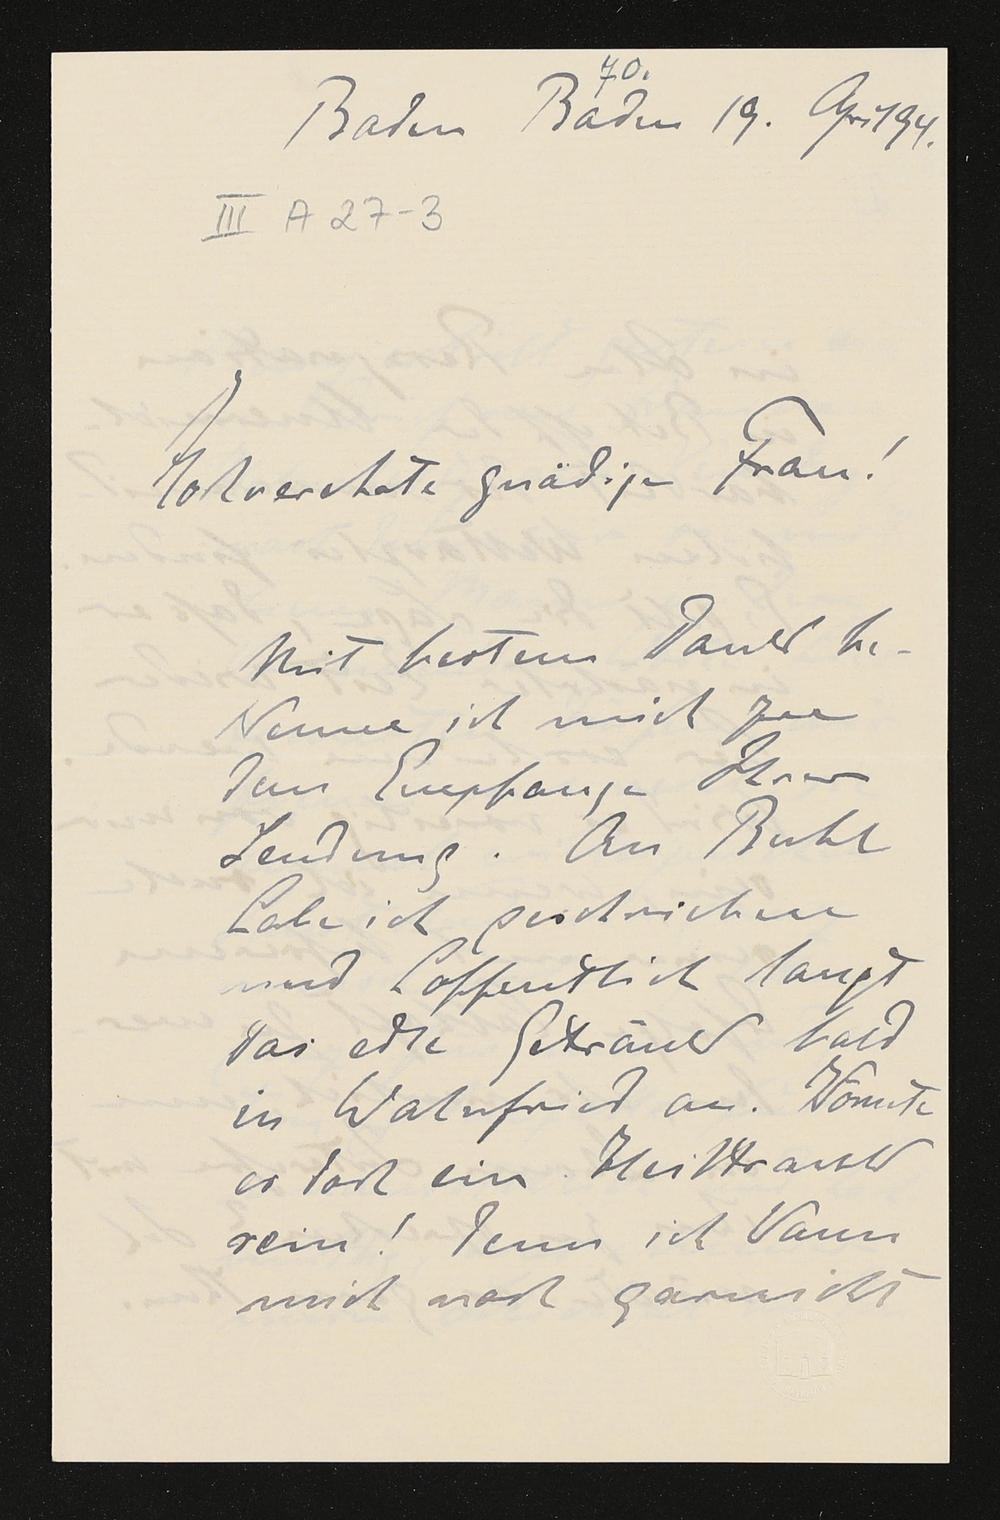 70.
Baden Baden 19. April 94.
III A 27-3
Hochverehrte gnädige Frau!
Mit bestem Dank be-
kenne ich mich zu
dem Empfange Ihrer
Sendung. An Buhl
habe ich geschrieben
und hoffentlich langt
das edle Getränk bald
in Wahnfried an. Könnte
es doch ein Heiltrank
sein! Denn ich kann
mich noch garnicht